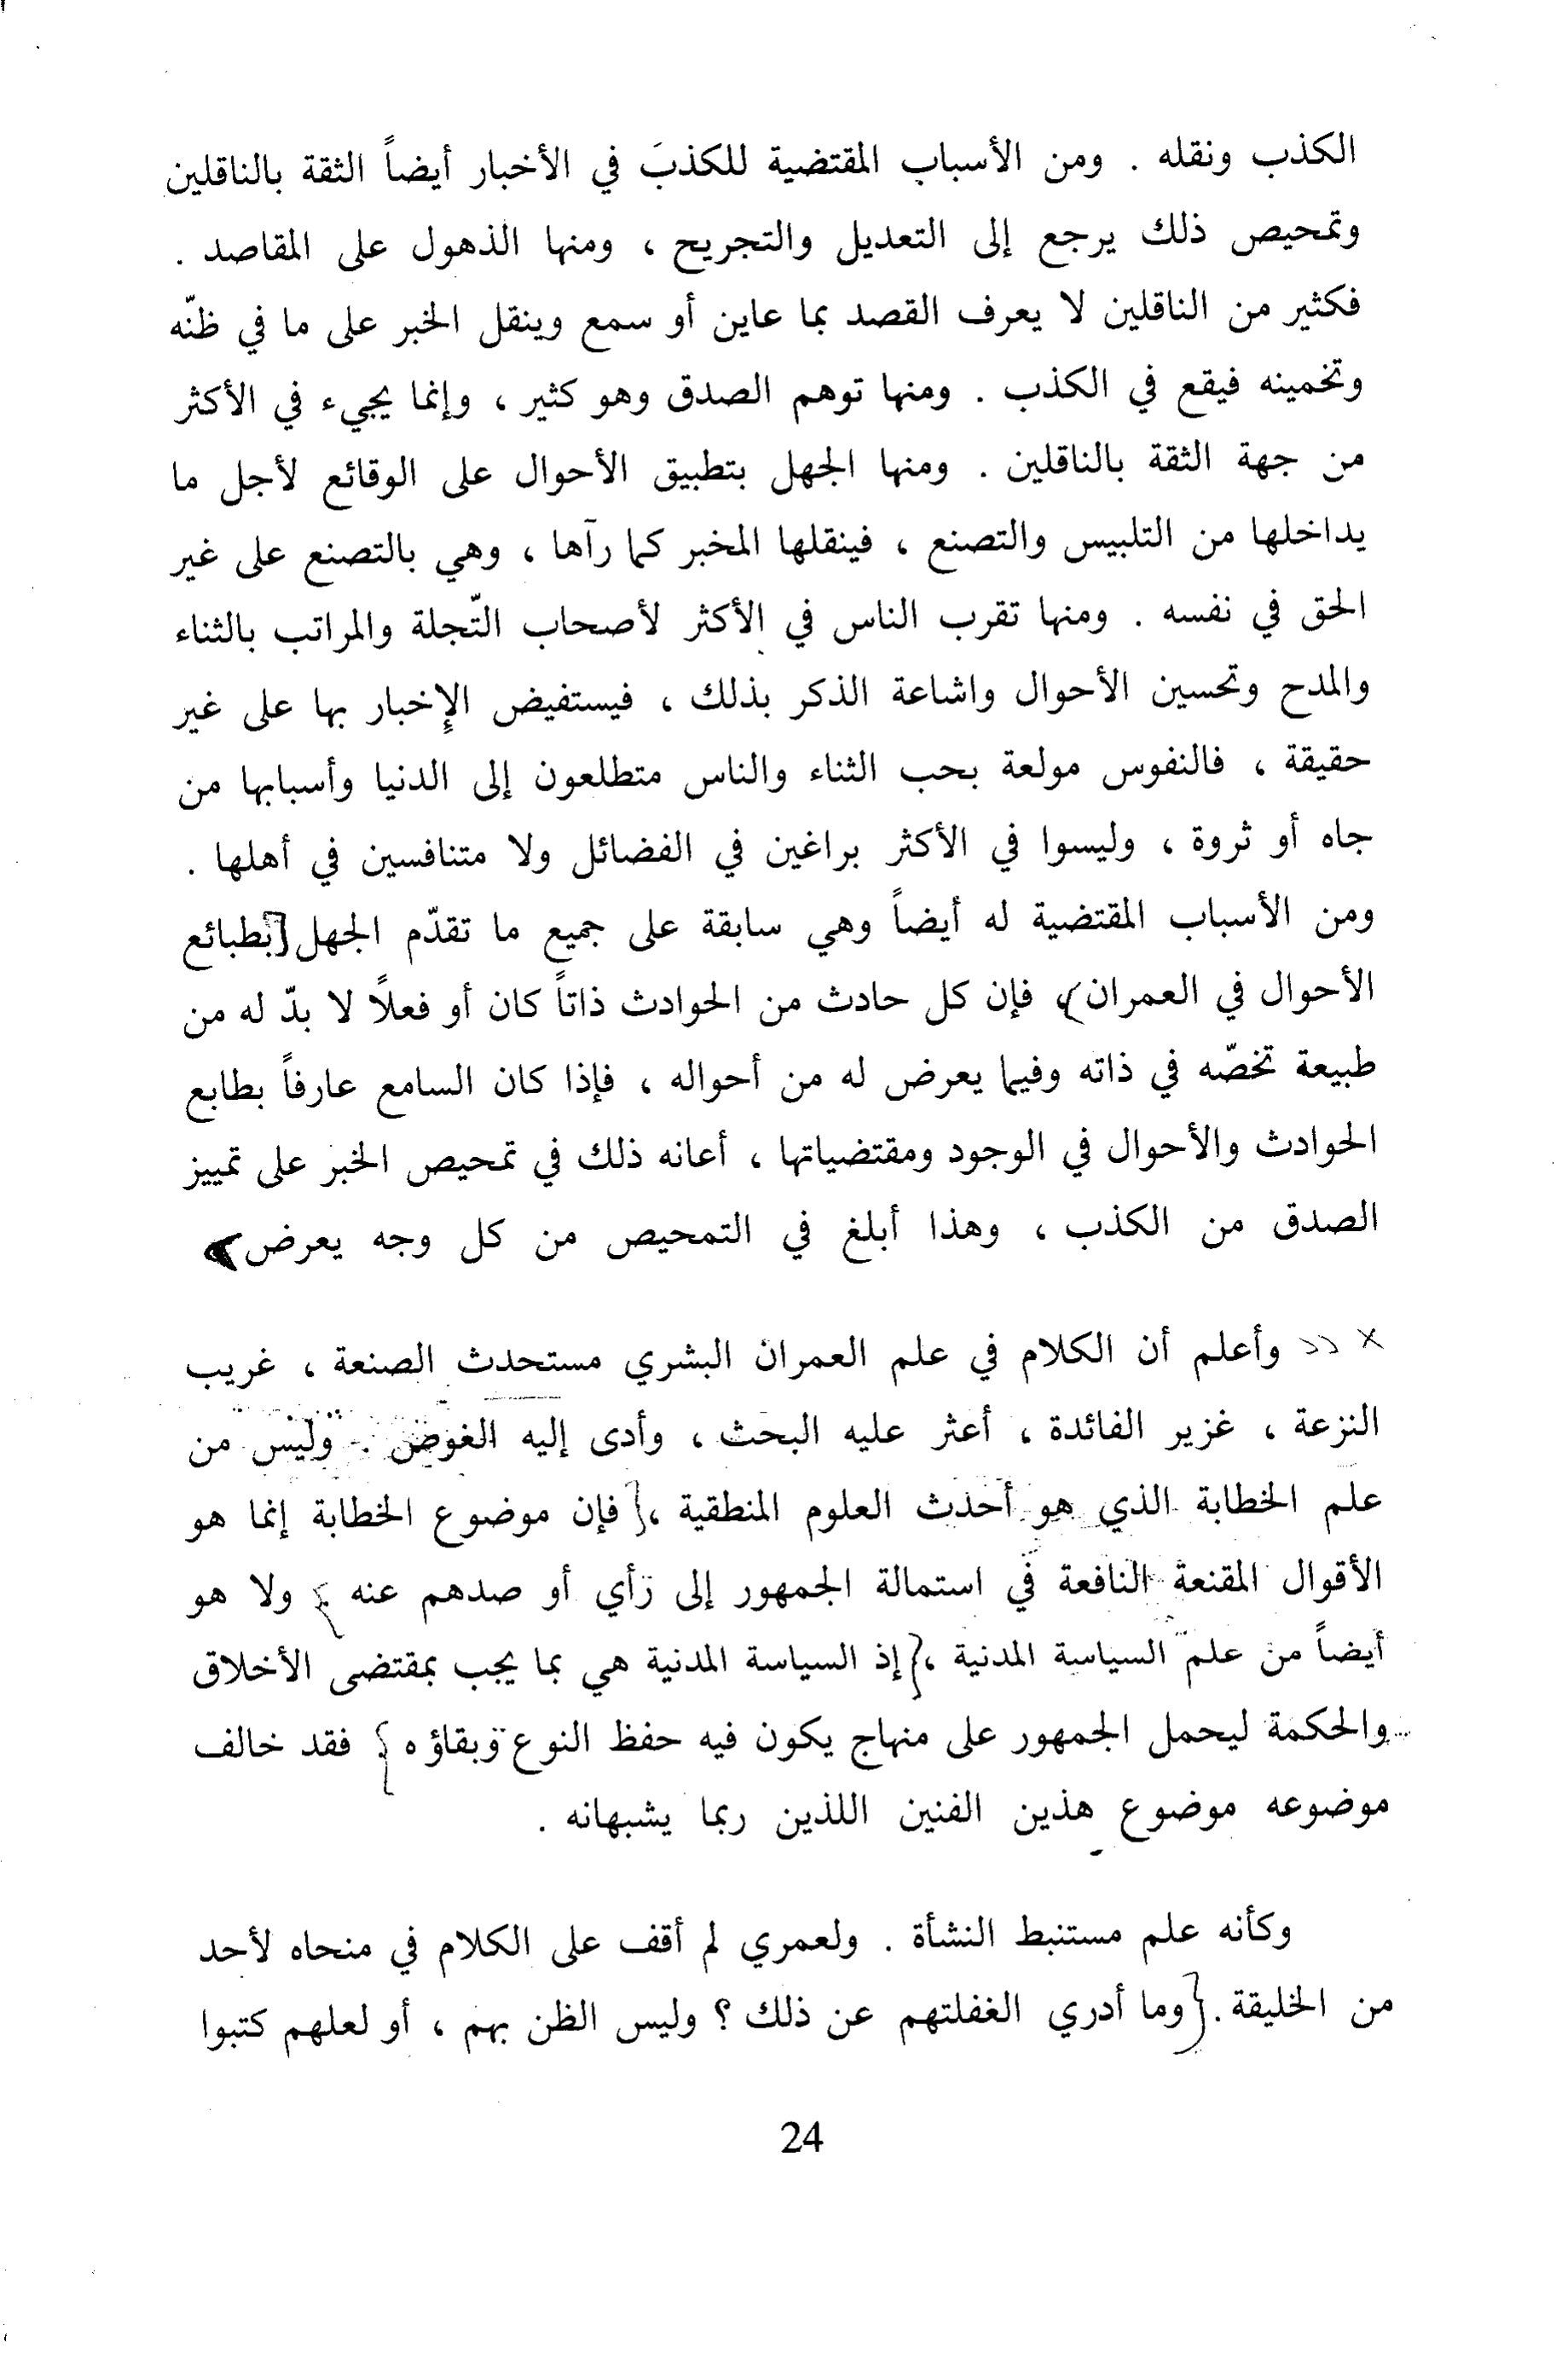 الكذب ونقله . ومن الأسباب المقتضية للكذب في الأخبار أيضاً الثقة بالناقلين
وتمحيص ذلك يرجع إلى التعديل والتجريح ، ومنها الذهول على المقاصد .
فكثير من الناقلين لا يعرف القصد بما عاين أو سمع وينقل الخبر على ما في ظنّه
وتخمينه فيقع في الكذب . ومنها توهم الصدق وهو كثير ، وإنما يجيء في الأكثر
من جهة الثقة بالناقلين . ومنها الجهل بتطبيق الأحوال على الوقائع لأجل ما
يداخلها من التلبيس والتصنع ، فينقلها المخبر كما رآها ، وهي بالتصنع على غير
الحق في نفسه . ومنها تقرب الناس في الأكثر لأصحاب التّجلة والمراتب بالثناء
والمدح وتحسين الأحوال واشاعة الذكر بذلك ، فيستفيض الإخبار بها على غير
حقيقة ، فالنفوس مولعة بحب الثناء والناس متطلعون إلى الدنيا وأسبابها من
جاه أو ثروة ، وليسوا في الأكثر براغبين في الفضائل ولا متنافسين في أهلها .
ومن الأسباب المقتضية له أيضاً وهي سابقة على جميع ما تقدّم الجهل [بطبائع
الأحوال في العمران) فإن كل حادث من الحوادث ذاتاً كان أو فعلاً لا بدّ له من
طبيعة تخصّه في ذاته وفيما يعرض له من أحواله ، فإذا كان السامع عارفاً بطابع
الحوادث والأحوال في الوجود ومقتضياتها ، أعانه ذلك في تمحيص الخبر على تمييز
الصدق من الكذب ، وهذا أبلغ في التمحيص من كل وجه يعرض »
× « وأعلم أن الكلام في علم العمران البشري مستحدث الصنعة ، غريب
النزعة ، غزير الفائدة ، أعثر عليه البحث ، وأدى إليه الغوص . وليس من
علم الخطابة الذي هو أحدث العلوم المنطقية ،{ فإن موضوع الخطابة إنما هو
الأقوال المقنعة النافعة في استمالة الجمهور إلى رأي أو صدهم عنه } ولا هو
أيضاً من علم السياسة المدنية ،{ إذ السياسة المدنية هي بما يجب بمقتضى الأخلاق
والحكمة ليحمل الجمهور على منهاج يكون فيه حفظ النوع وبقاؤه } فقد خالف
موضوعه موضوع هذين الفنين اللذين ربما يشبهانه .
وكأنه علم مستنبط النشأة . ولعمري لم أقف على الكلام في منحاه لأحد
من الخليقة .{ وما أدري الغفلتهم عن ذلك ؟ وليس الظن بهم ، أو لعلهم كتبوا
24